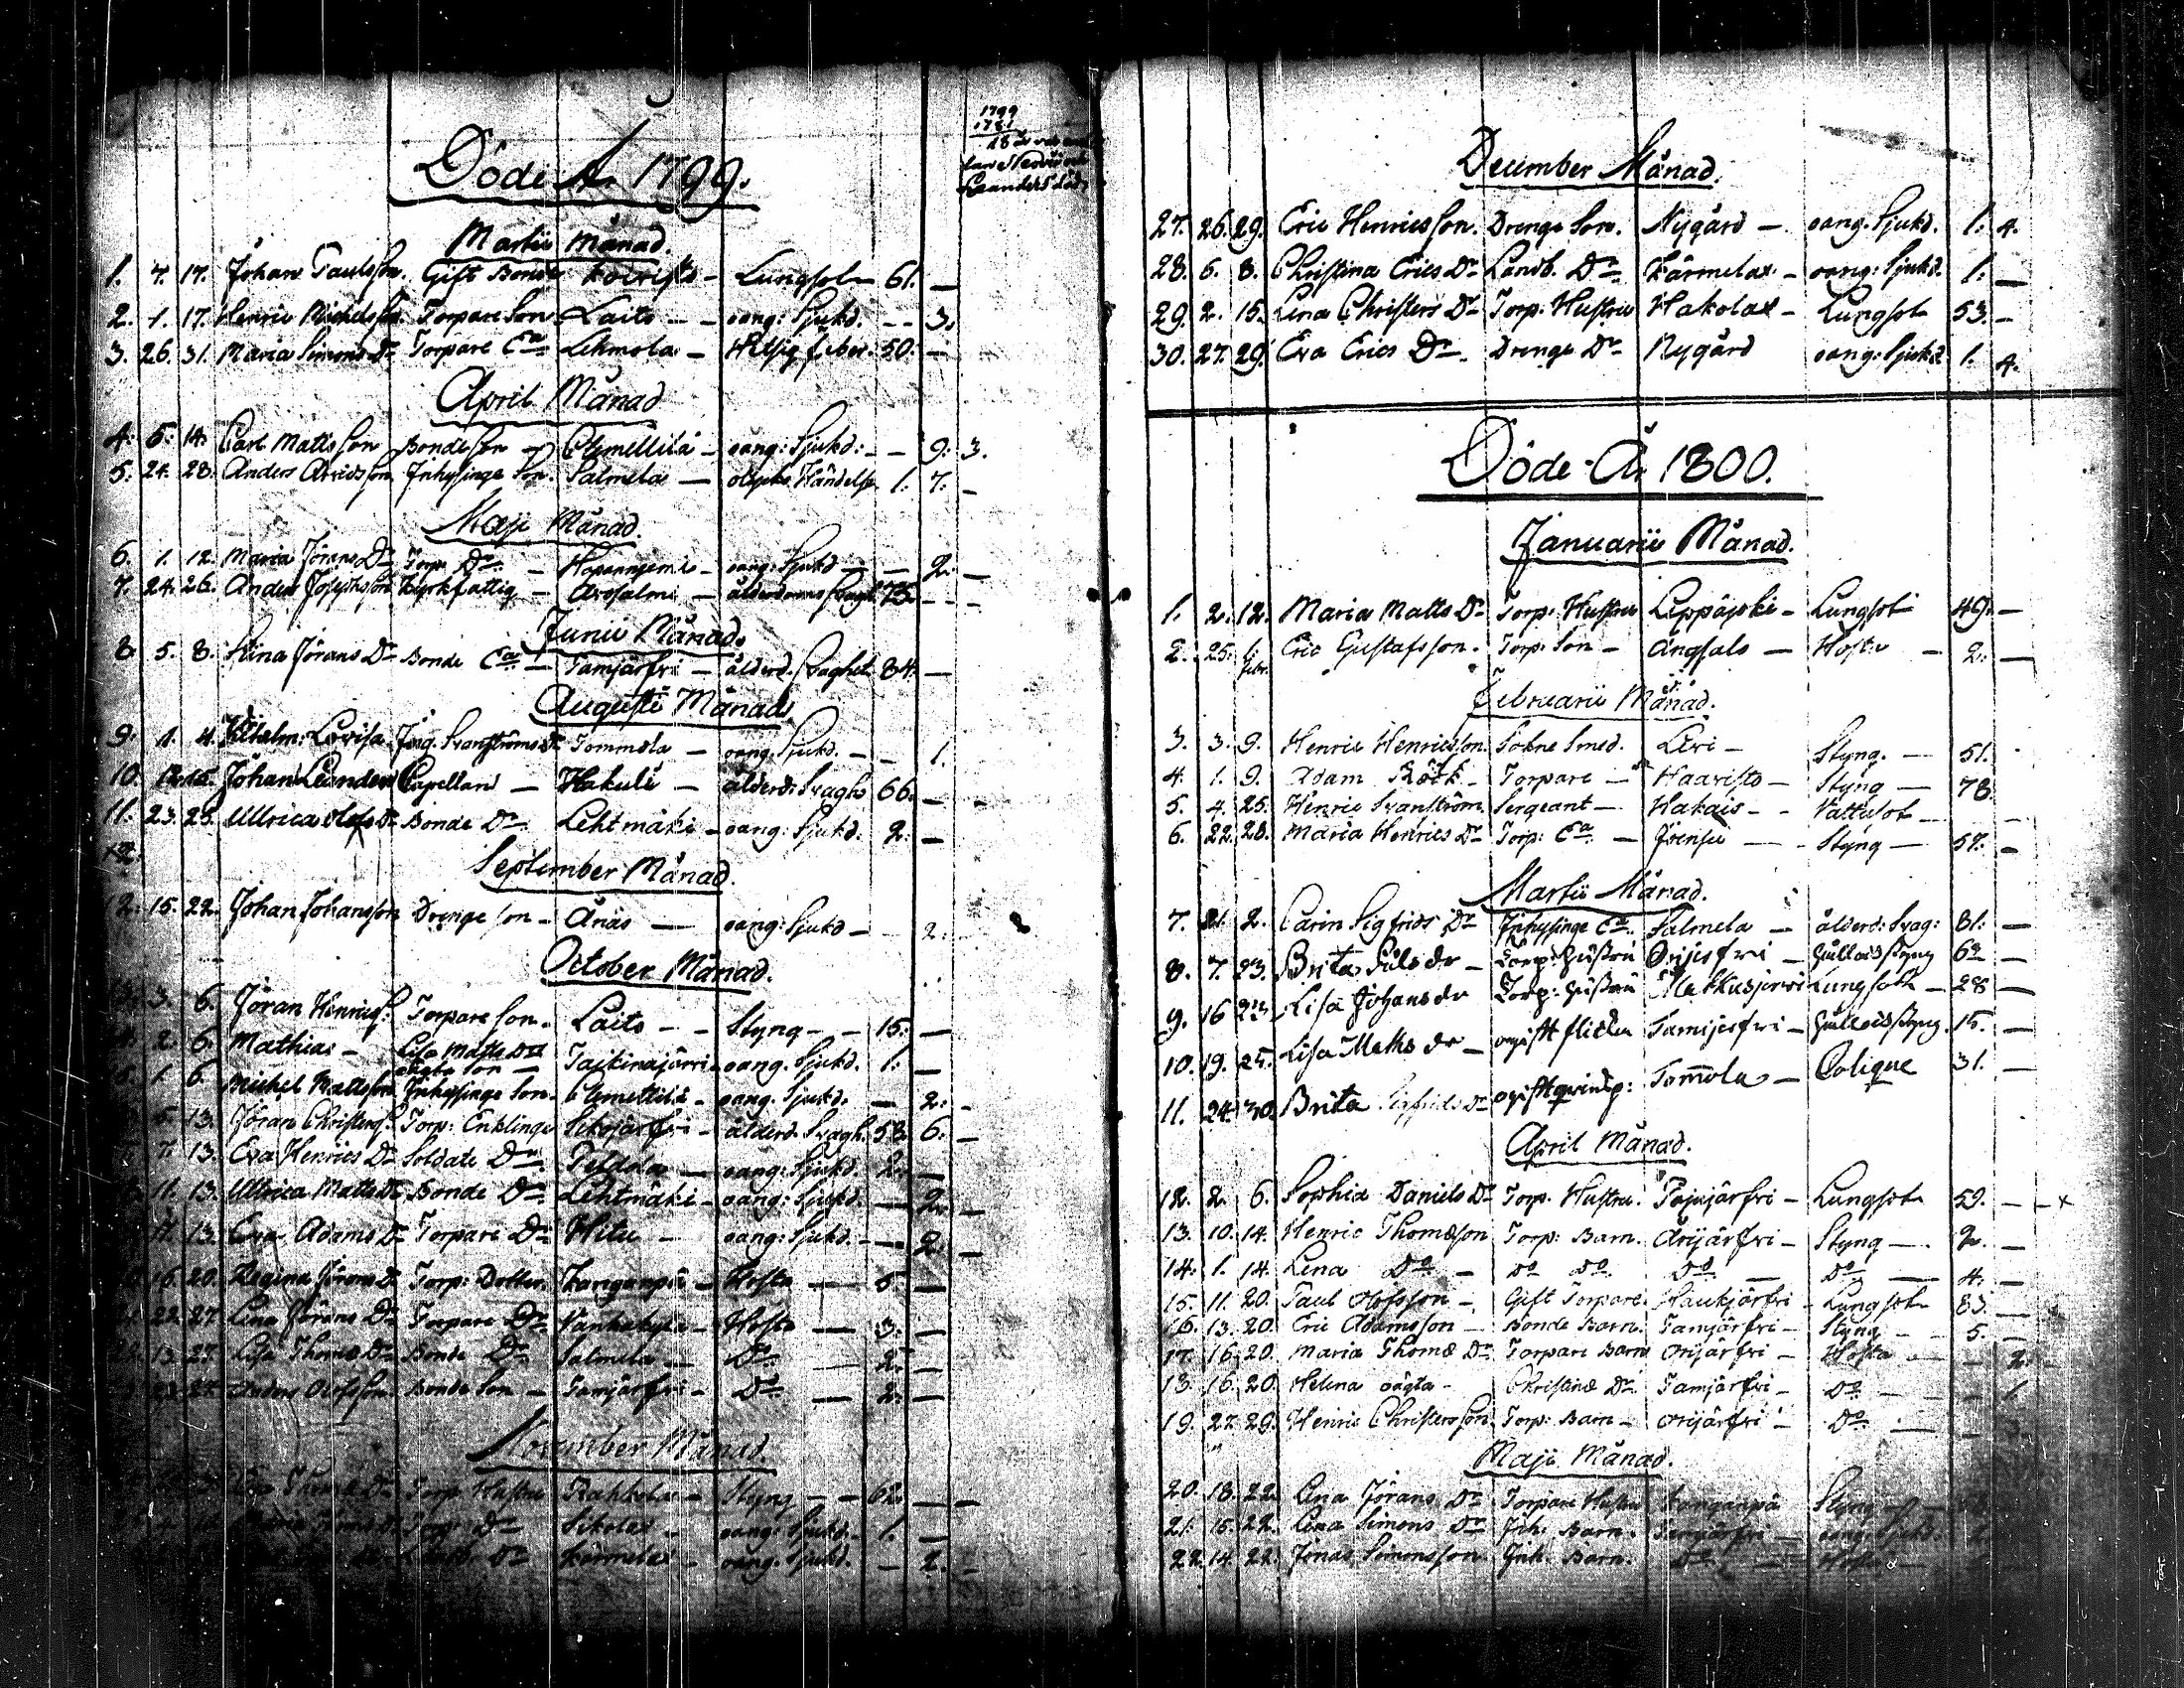 1799
1781
18
Döde År 1799.
Martii Månad.
1. 7. 17. Johan Paulsson. Gift Bonde Koivisto - Lungsot 61. -
2. 1. 17. Henric Michelsson Torpare Son Laito - - oang: Sjukd. - - 3.
3. 26. 31. Maria Simons Dr Torpare Ea Lehmola - Hitsig feber. 50. -
April Månad
4. 5. 14. Carl Matts Son Bonde Son - Clemettilä - oang: Sjukd: - - 9. 3.
5. 24. 28. Anders Arvidsson Inhysinge Son. Salmela - olycks Händelse 1. 7. -
Maji Månad.
6. 1. 12. Maria Jörans Dr Torp. Dr - - oang: Sjukd - - 2. -
7. 24. 26. Anders Josephsson Kyrkfattig - Arosalmi - ålderdoms svagh. 75. - -
Junii Månad.
8. 5. 8. Stina Jörans Dr Bonde Ea - Tamjärfvi - ålderd. svaghet 84. -
Augusti Månad
9. 1. 4. Wilhelm: Lovisa Jöng. Svanströms Dr Tommola - oang: Sjukd. - - 1.
10. Johan Leander Capellan - Hakule - ålderd: Svagh 66. - -
11. 23. 25. Ullrica Olofs Dr Bonde Dr Lehtmäki - oang: Sjukd. 2. -
September Månad.
12. 15. 22. Johan Johansson Drenge son - Ånäs - oang: Sjukd - - 2.
October Månad.
3. 6. Jöran Henrics. Torpare Son. Laito - - Styng - - 15. -
2. 6. Mathias - Lisa Matts Dr oägta Son - Taitinajärvi - oang. Sjukd. 1. -
1. 6. Michel Mattsson Inhysinge Son - Clemettilä - oang. Sjukd. - 2. -
5. 13. Jöran Christers. Torp: Enklinge Sikojärfvi - ålderd. Svagh. 58. 6. -
7. 13. Eva Henrics Dr Soldate Dr Peldola - oang: Sjukd. 2. -
11. 13. Ullrica Matts Dr Bonde Dr Lehtmäki - oang: Sjukd. - 2. -
11. 13. Eva Adams Dr Torpare Dr Hitu - oang: Sjukd. - 2. -
16. 20. Regina Jörans Dr Torp: Dotter. Kanganpä - Hosta - 5. -
22. 27. Lena Jörans Dr Torpare Dr Vanhakylä - Hosta - 3. -
13. 27. Lisa Thoms Dr Bonde Dr Salmela - Do - 2. -
23. 27. Anders Olofsson Bonde Son - Tamjärfvi - Do - 2. -
November Månad.
Torp. Hustru Rahkola - Styng - - 62. - -
Torp. Dr Sikola - oang: Sjukd. - 1. -
Dr Kärmelax - oang. Sjukd. - 2. -
December Månad.
27. 26. 29. Eric Henricsson. Drenge Son. Nygård - oang. Sjukd. 1. 4.
28. 6. 8. Christina Erics Dr Landb. Dr Kärmelax - oang: Sjukd. 1. -
29. 2. 15. Lena Christers Dr Torp: Hustru Hakolax - Lungsot 53. -
30. 27. 29. Eva Erics Dr. Drenge Dr Nygård oang: Sjukd. 1. 4.
Döde År 1800.
Januarii Månad.
1. 2. 12. Maria Matts Dr Torp: Hustru Leppäjoki - Lungsot 49. -
2. 25. 1. febr. Eric Gustafsson. Torp. Son - Angsalo - Hosta - 2. -
Februarii Månad.
3. 3. 9. Henric Henricsson Sokne Smed. Levi - Styng. - 51.
4. 1. 9. Adam Röök - Torpare - Haaristo - Styng - 78.
5. 4. 25. Henric Svanström Sergeant - Hakais - - Vattusot -
6. 22. 28. Maria Henrics Dr Torp: Ea - - Styng - 57. -
Martii Månad.
7. 21. 2. Carin Sigfrids Dr Inhysinge Ea Salmela - ålderd: svag: 81. -
8. 7. 23. Brita Påls dr - Torp: Hustru Orijerfvi - Hålloch styng 62 -
9. 16 23. Lisa Johans dr Torp: Hustru Matkusjervi Lungsoth - 28 -
10. 19. 25. Lisa Matts dr - ogift flicka Tamijerfvi - Hålloch styng. 15. -
11. 24. 30. Brita Sigfrids Dr ogift qwinsp: Tom̄ola - Colique 31. -
April Månad.
12. 2. 6. Sophia Daniels Dr Torp. Hustru. Pajujärfvi - Lungsot 59. - - x
13. 10. 14. Henric Thomæson Torp: Barn. Orijärfvi - Styng - 2. -
14. 1. 14. Lena Do - do do do - do - 4. -
15. 11. 20. Paul Olofsson - Gift Torpare. Haukjärfvi - Lungsot 83. -
16. 13. 20. Eric Adamsson - Bonde Barn. Tamjärfvi - Styng - 5. -
17. 16. 20. Maria Thomæ Dr Torpare Barn Orijärfvi - Hosta - - 2. -
18. 16. 20. Helena oägta - Christinæ Dr. Tamjärfvi - Do - - 1.
19. 27. 29. Henric Christersson. Torp: Barn - Orijärfvi - Do -
Maji Månad.
20. 18. 22. Lena Jörans Dr Torpare Hustru Kanganpä Styng
21. 15. 22. Lena Simons Dr Inh: Barn. Tamjärfvi - oang. Sjukd.
22. 14. 22. Jonas Simonsson. Inh. Barn. Do - Hosta -